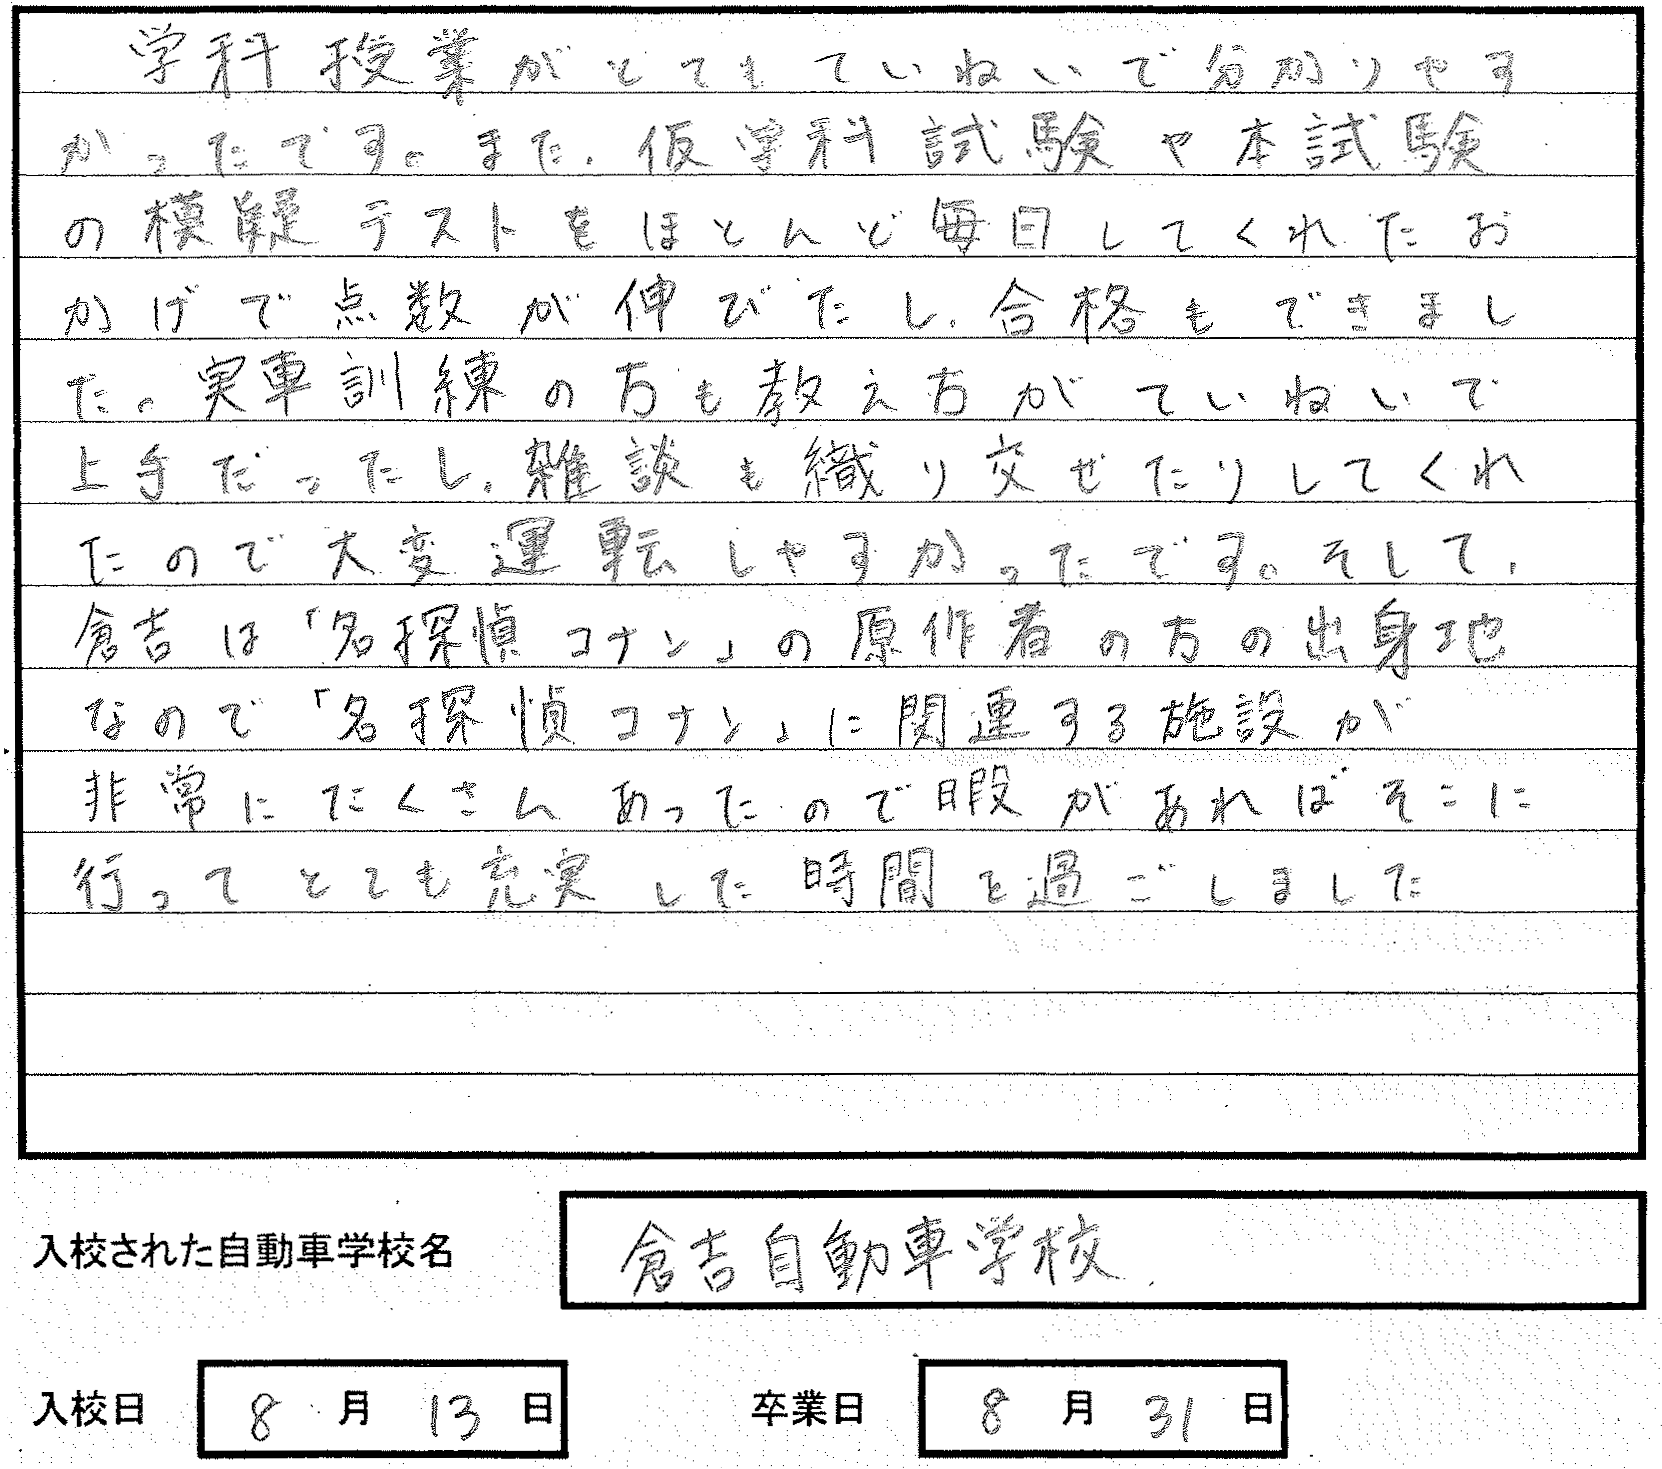 学科授業がとてもていねいで分かりやす
かったです。また、仮学科試験や本試験
の模擬テストをほとんど毎日してくれたお
かげで点数が伸びたし、合格もできまし
た。実車訓練の方も教え方がていねいで
上手だったし、雑談も織り交ぜたりしてくれ
たので大変運転しやすかったです。そして、
倉吉は「名探偵コナン」の原作者の方の出身地
なので「名探偵コナン」に関連する施設が
非常にたくさんあったので暇があればそこに
行ってとても充実した時間を過ごしました
入校された自動車学校名 倉吉自動車学校
入校日 8月13日 卒業日 8月31日